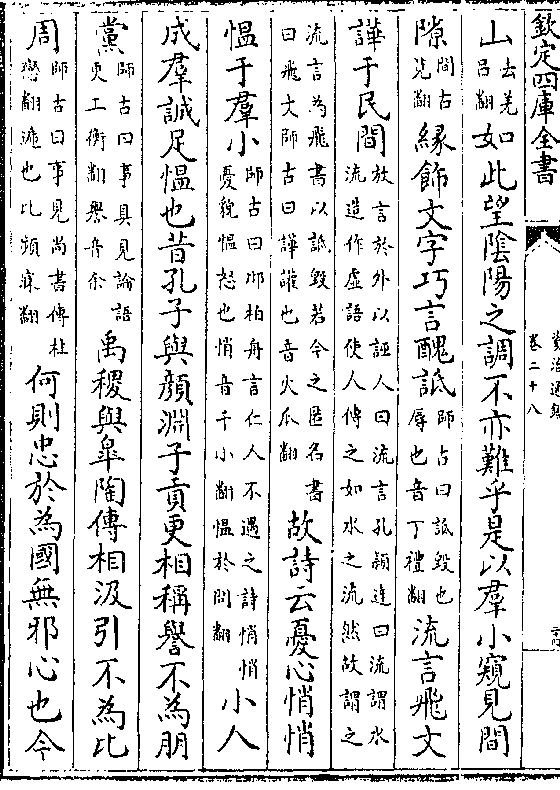 欽定四庫全書
資治通鑑
卷二十八
山去羌呂翻如此望陰陽之調不亦難乎是以羣小窺見間
隙間古莧翻緣飾文字巧言醜詆師古曰詆毀也辱也音丁禮翻流言飛文
譁于民間放言於外以誣人曰流言孔穎達曰流謂水流造作虛語使人傳之如水之流然故謂之
流言為飛書以詆毀若今之匿名書曰飛文師古曰譁讙也音火瓜翻故詩云憂心悄悄
愠于羣小師古曰邶柏舟言仁人不遇之詩悄悄憂貌愠怒也悄音千小翻愠於問翻小人
成羣誠足愠也昔孔子與顏淵子貢更相稱譽不為朋
黨師古曰事具見論語更工衡翻譽音余禹稷與臯陶傳相汲引不為比
周師古曰事見尚書傳杜戀翻遞也比頻寐翻何則忠於為國無邪心也今